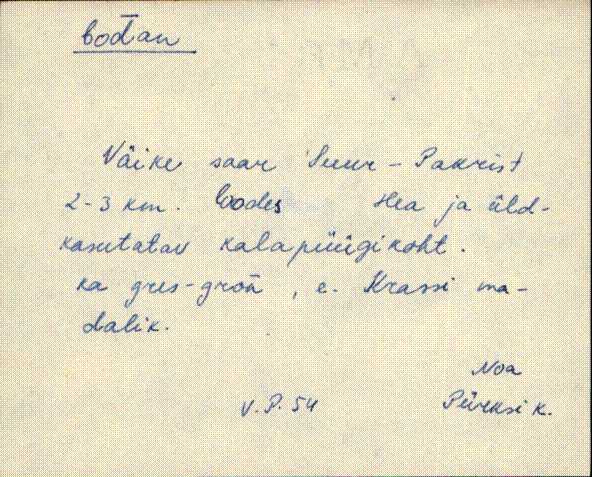 bōdan
Väike saar Suur-Pakrist
2-3 km. loodes Hea ja üld-
kasutatav kalapüügikoht.
ka gres-grön, e. Krassi ma-
dalik.
Noa
V.P. 54 Püreksi k.